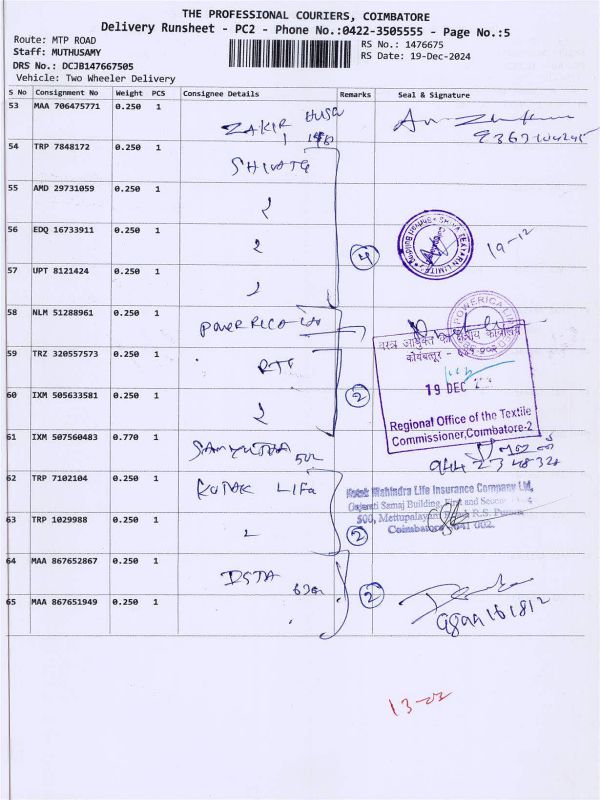 THE PROFESSIONAL COURIERS, COIMBATORE
Delivery Runsheet - PC2 - Phone No.:0422-3505555 - Page No.:5
Route: MTP ROAD
Staff: MUTHUSAMY
RS No.: 1476675
RS Date: 19-Dec-2024
DRS No.: DCJB147667505
Vehicle: Two Wheeler Delivery
S No Consignment No Weight PCS Consignee Details Remarks Seal & Signature
53 MAA 706475771 0.250 1 ZAKIR
54 TRP 7848172 0.250 1
55 AMD 29731059 0.250 1
56 EDQ 16733911 0.250 1 4 19-12
57 UPT 8121424 0.250 1
58 NLM 51288961 0.250 1
POWERICA LI
59 TRZ 320557573 0.250 1 RTF
19 DEC
60 IXM 505633581 0.250 1 2
Regional Office of the Textile
Commissioner, Coimbatore-2
61 IXM 507560483 0.770 1
62 TRP 7102104 0.250 1 KOTAK LIFE
Kotak Mahindra Life Insurance Company Ltd,
Gujarati Samaj Building, First and
500, Mettupalayam R.S.
Coimbatore 641 002.
63 TRP 1029988 0.250 1 2
64 MAA 867652867 0.250 1 2
65 MAA 867651949 0.250 1